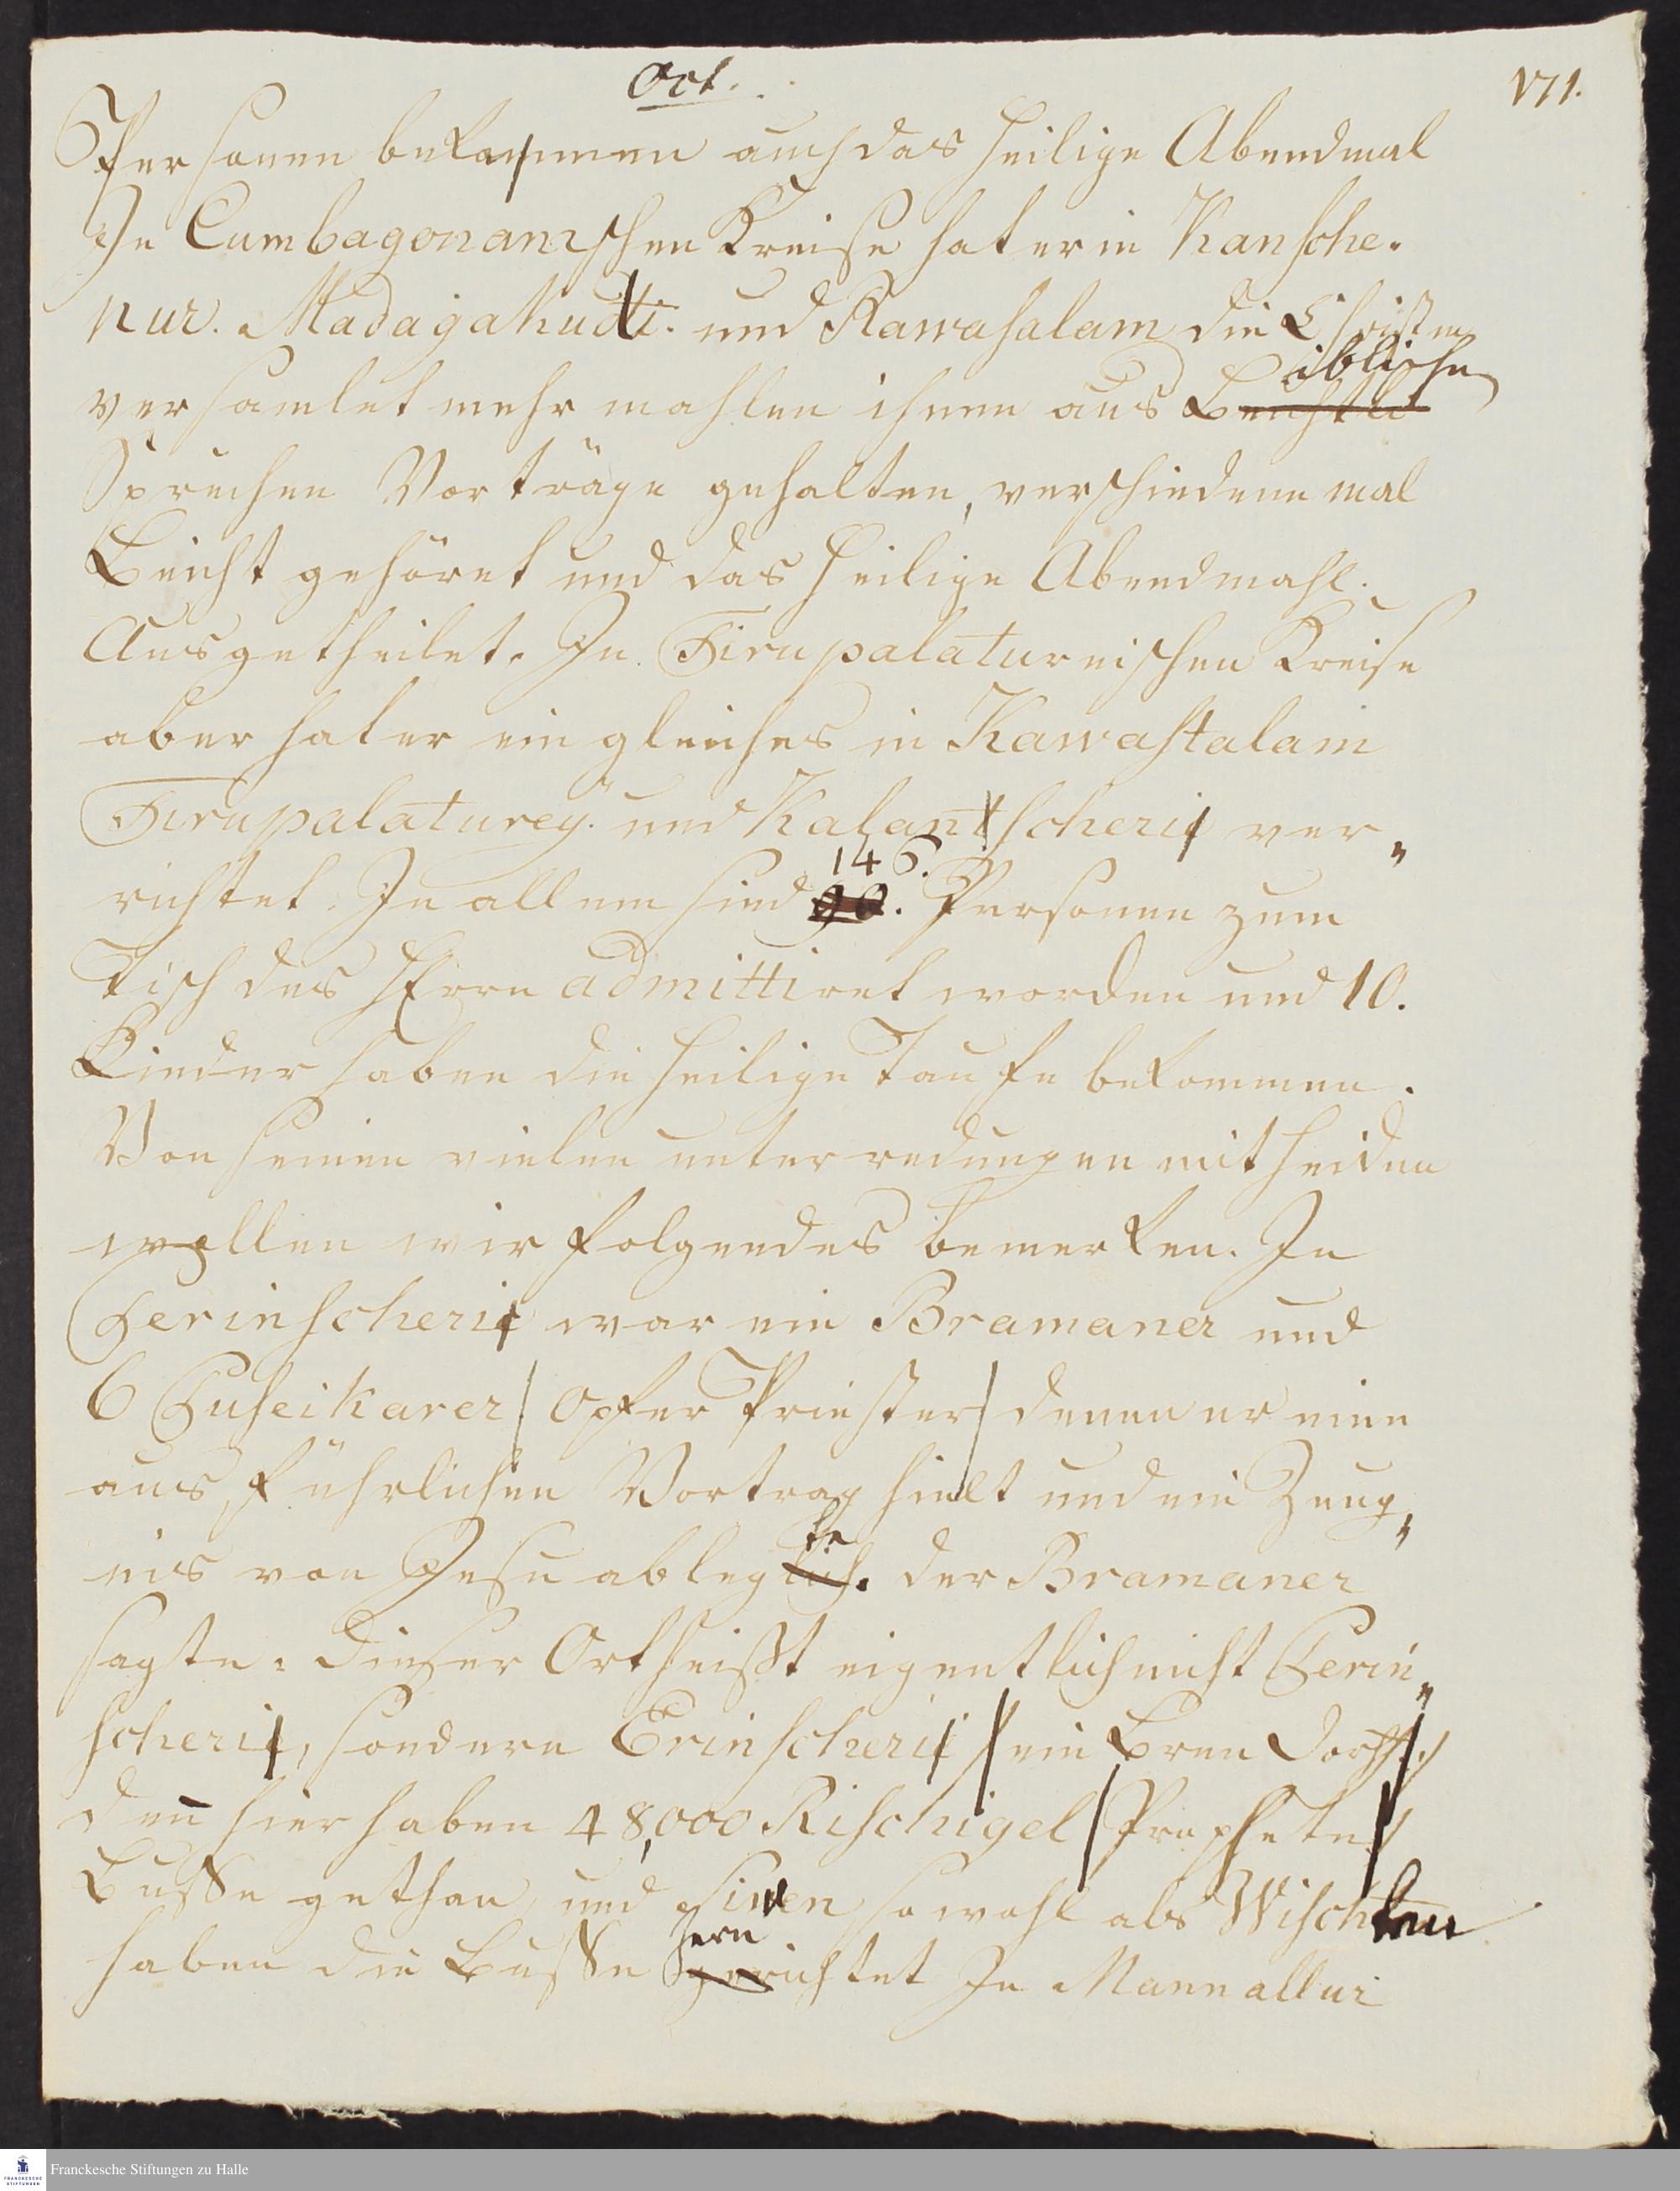 Oct.
171.
Personen bekommen auch das heilige Abendmal
In Cumbagonamschen Kreise hat er in Kansche-
nur. Madagakudi. und Kawasalam die Christen
versamlet mehr mahlen ihnen aus Biblischen
Sprüchen Vorträge gehalten, verschiedene mal
Beicht gehöret und das heilige Abendmahl.
Ausgetheilet. In Tirupalatureischen Kreise
aber hat er ein gleiches in Kawastalam
Tirupalaturey. und Kalantscheri ver„
146.
richtet. In allem sind 90. Personen zum
Tisch des HErrn admittiret worden und 10.
Kinder haben die heilige Taufe bekommen.
Von seinen vielen unterredungen mit Heiden
wollen wir folgendes bemerken. In
Perinscheri war ein Bramaner und
6 Puseikarer / Opfer Priester / denen er einen
ausführlichen Vortrag hielt und ein Zeug„
nis von Jesu ablegte. der Bramaner
sagte: dieser Ort heißt eigentlich nicht Perin„
scheri, sondern Erinscheri / ein Bren dorff /
den hier haben 48,000 Rischigel / Propheten /
Busse gethan und Siwen sowohl als Wischtnu
hern
haben die Busse gerichtet In Mannallur
Franckesche Stiftungen zu Halle